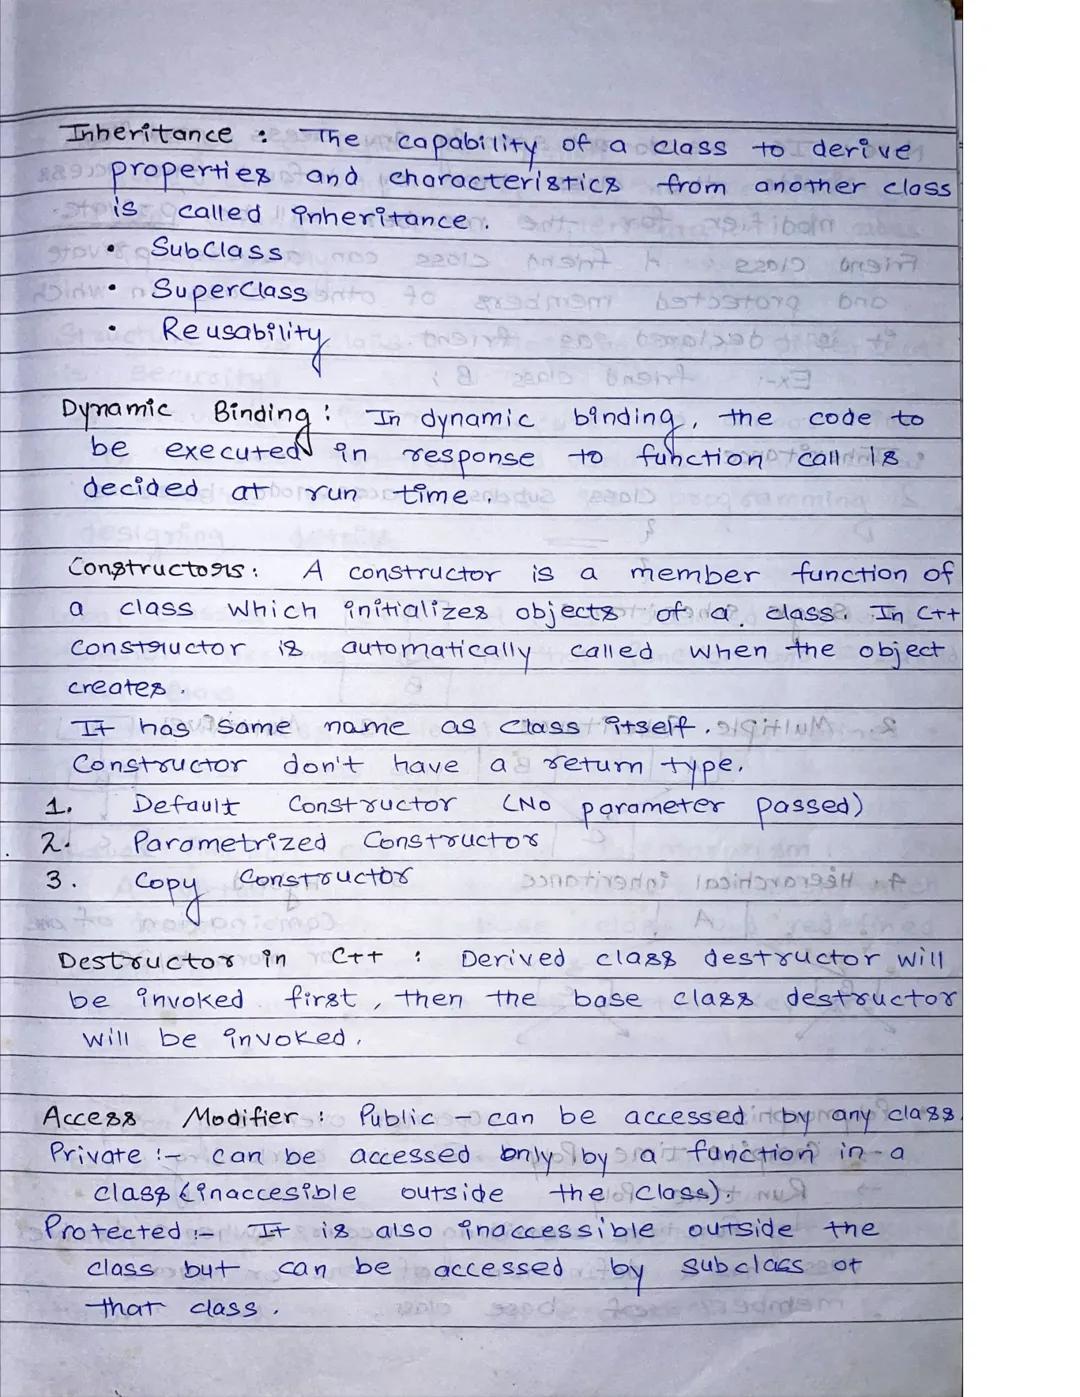 Inheritance : The capability of a class to derive
properties and characteristics from another class
is called inheritance.
• SubClass
• SuperClass
• Reusability
Dynamic Binding : In dynamic binding, the code to
be executed in response to function call is
decided at run time.
Constructors : A constructor is a member function of
a class which initializes objects of a class. In C++
Constructor is automatically called when the object
creates.
It has same name as class itself.
Constructor don't have a return type.
1. Default Constructor (No parameter passed)
2. Parametrized Constructor
3. Copy Constructor
Destructor in C++ : Derived class destructor will
be invoked first, then the base class destructor
will be invoked.
Access Modifier : Public – can be accessed by any class.
Private :- can be accessed only by a function in a
class (inaccesible outside the class).
Protected :- It is also inaccessible outside the
class but can be accessed by subclass of
that class.